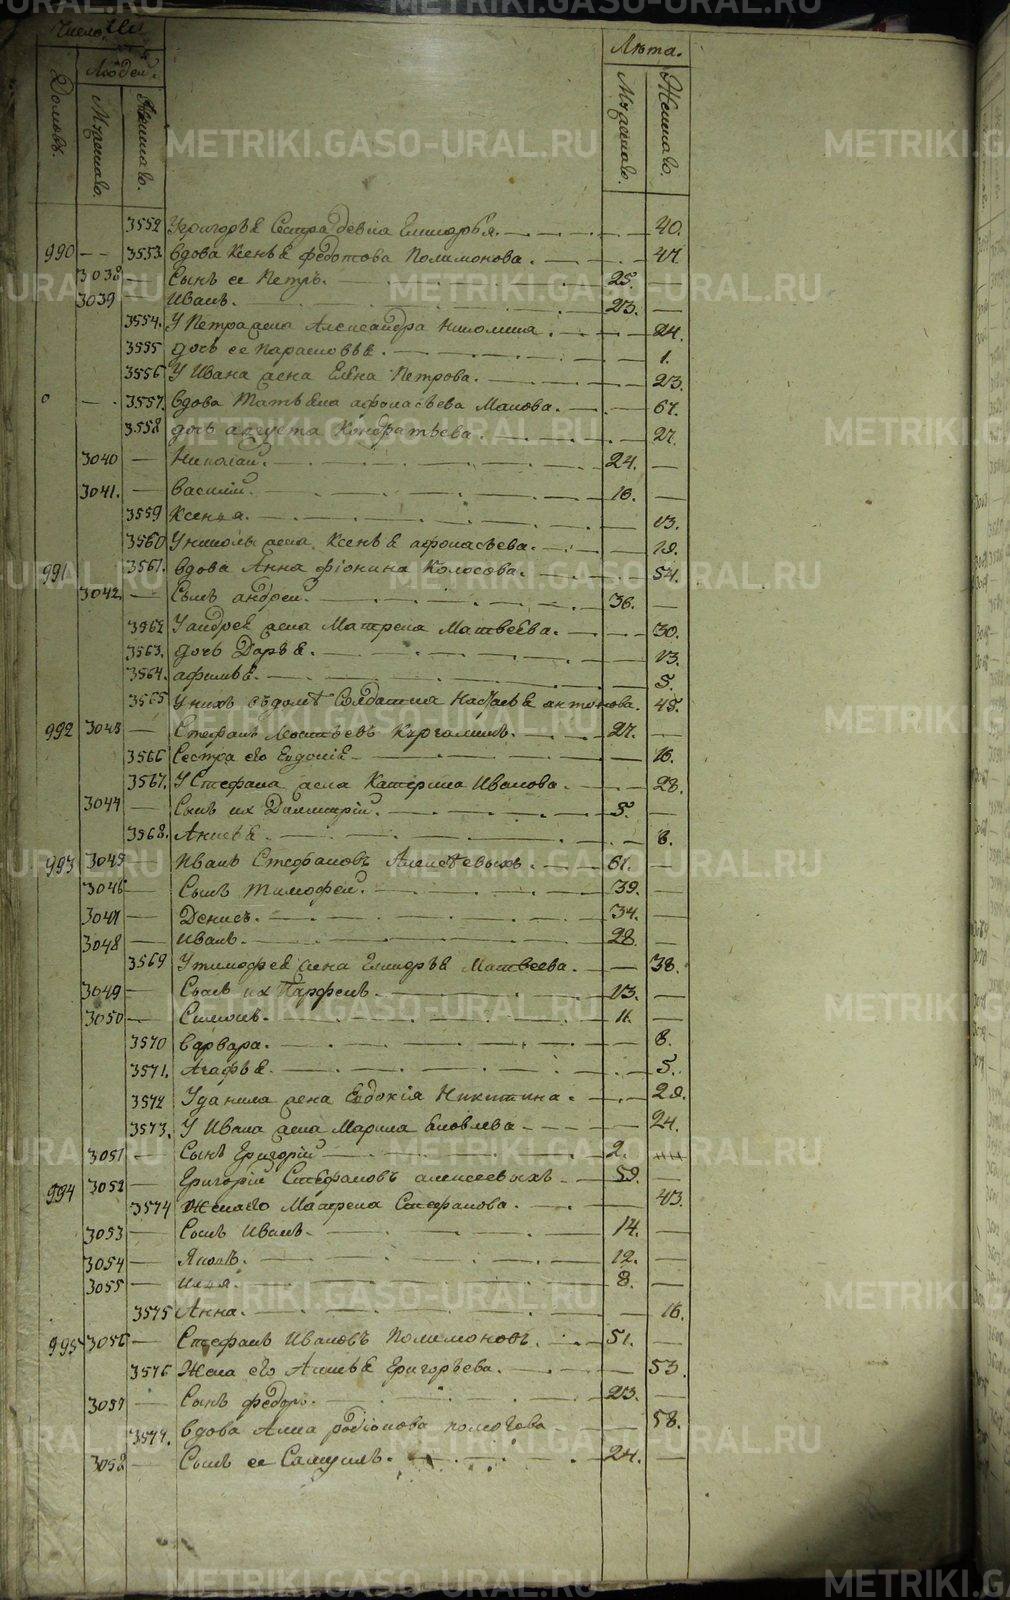 Число
Людей.
Лѣта.
Домовъ.
Мужескаго.
Женскаго.
Мужескаго.
Женскаго.
3552 У Григорья Сестра девка 40.
990 — — 3553 вдова Ксенья федотова Полимонова. 47
3038 — Сынъ ее Петръ. 25. —
3039 — Иванъ. 23. —
3554. У Петра жена Александра 24.
3555 дочь ее Парасковья. 1.
3556 У Ивана жена Елена Петрова. 23.
0 — 3557. вдова Татьяна афонасьева Малова. 67.
3558 дочь августа Кондратьева. 27.
3040 — Николай. 24. —
3041. — Василий. 16. —
3559 Ксенья. 13.
3560 У николы жена Ксенья афонасьева. 19.
991 3561. вдова Анна фіонина Колосова. 54.
3042. — Сынъ андрей. 36. —
3562 У андрея жена Матрена Матвеева. 30.
3563. дочь Дарья. 13.
3564. афимья. 5.
3565 У нихъ въ доме Солдатка Настасья антонова. 45.
992 3043 — Стефанъ 27. —
3566 Сестра его Евдокія 16.
3567. У Стефана жена Катерина Иванова. 28.
3044 — Сынъ их Димитрій. 5. —
3568. Анисья. 8.
993 3045 Иванъ Стефановъ Алексеевыхъ. 61. —
3046 — Сынъ Тимофей. 39. —
3047 — Денисъ. 34. —
3048 — Иванъ. 28. —
3569 У тимофея жена Матвеева. 38.
3049 — Сынъ их Парфенъ. 13. —
3050 — Симонъ. 11. —
3570 варвара. 8.
3571. Агафья. 5.
3572 У данила жена Евдокія Никитина. 29.
3573. У Ивана жена Марина яковлева 24.
3051 — Сынъ Григорій 2.
994 3052 — Григорій Стефановъ алексеевыхъ 59. —
3574 Жена его Матрена Стефанова. 43.
3053 — Сынъ Иванъ. 14. —
3054 — Яковъ. 12. —
3055 — илья. 8. —
3575 Анна. 16.
995 3056 — Стефанъ Ивановъ Полимоновъ. 51. —
3576 Жена его Анисья Григорьева. 53.
3057 — Сынъ федоръ. 23. —
3577. вдова Анна родіонова 58.
3058 — Сынъ ее Самуилъ. 24. —
METRIKI.GASO-URAL.RU